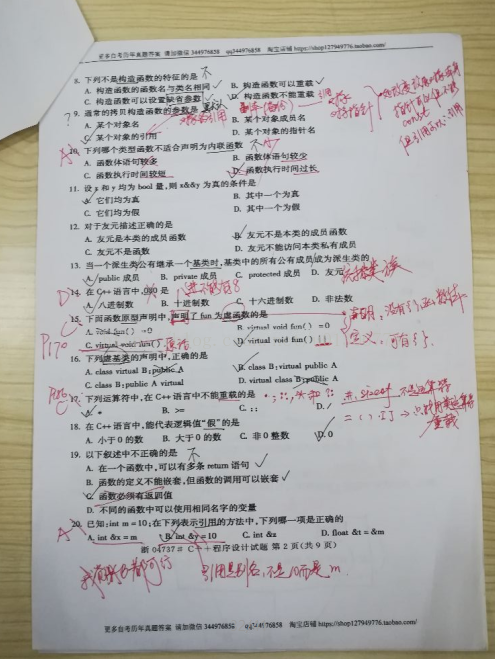 更多自考历年真题答案 请加微信 344976858 qq344976858 淘宝店铺 https://shop127949776.taobao.com/
8. 下列不是构造函数的特征的是 不
A. 构造函数的函数名与类名相同 B. 构造函数可以重载
C. 构造函数可以设置缺省参数 D. 构造函数不能重载
? 9. 通常的拷贝构造函数的参数是
A. 某个对象名 B. 某个对象成员名
C. 某个对象的引用 D. 某个对象的指针名
A 10. 下列哪个类型函数不适合声明为内联函数 不
A. 函数体语句较多 B. 函数体语句较少
C. 函数执行时间较短 D. 函数执行时间过长
11. 设 x 和 y 均为 bool 量,则 x&&y 为真的条件是
A. 它们均为真 B. 其中一个为真
C. 它们均为假 D. 其中一个为假
12. 对于友元描述正确的是
A. 友元是本类的成员函数 B. 友元不是本类的成员函数
C. 友元不是函数 D. 友元不能访问本类私有成员
13. 当一个派生类公有继承一个基类时,基类中的所有公有成员成为派生类的
A. public 成员 B. private 成员 C. protected 成员 D. 友元
D 14. 在 C++语言中,080 是
A. 八进制数 B. 十进制数 C. 十六进制数 D. 非法数
C 15. 下面函数原型声明中,声明了 fun 为虚函数的是
A. void fun() =0 B. virtual void fun() =0
C. virtual void fun(); D. virtual void fun() { }
P170
定义,
16. 下列虚基类的声明中,正确的是
A. class virtual B:public A B. class B:virtual public A
C. class B:public A virtual D. virtual class B:public A
17. 下列运算符中,在 C++语言中不能重载的是
A. * B. >= C. :: D. /
#, sizeof 不是运算符
18. 在 C++语言中,能代表逻辑值“假”的是
A. 小于 0 的数 B. 大于 0 的数 C. 非 0 整数 D. 0
重载
19. 以下叙述中不正确的是 不
A. 在一个函数中,可以有多条 return 语句
B. 函数的定义不能嵌套,但函数的调用可以嵌套
C. 函数必须有返回值
D. 不同的函数中可以使用相同名字的变量
A 20. 已知:int m = 10;在下列表示引用的方法中,下列哪一项是正确的
A. int &x = m B. int &y = 10 C. int &z D. float &t = &m
浙 04737# C++程序设计试题 第 2 页(共 9 页)
引用是别名,不是10而是 m.
更多自考历年真题答案 请加微信 344976858 qq344976858 淘宝店铺 https://shop127949776.taobao.com/